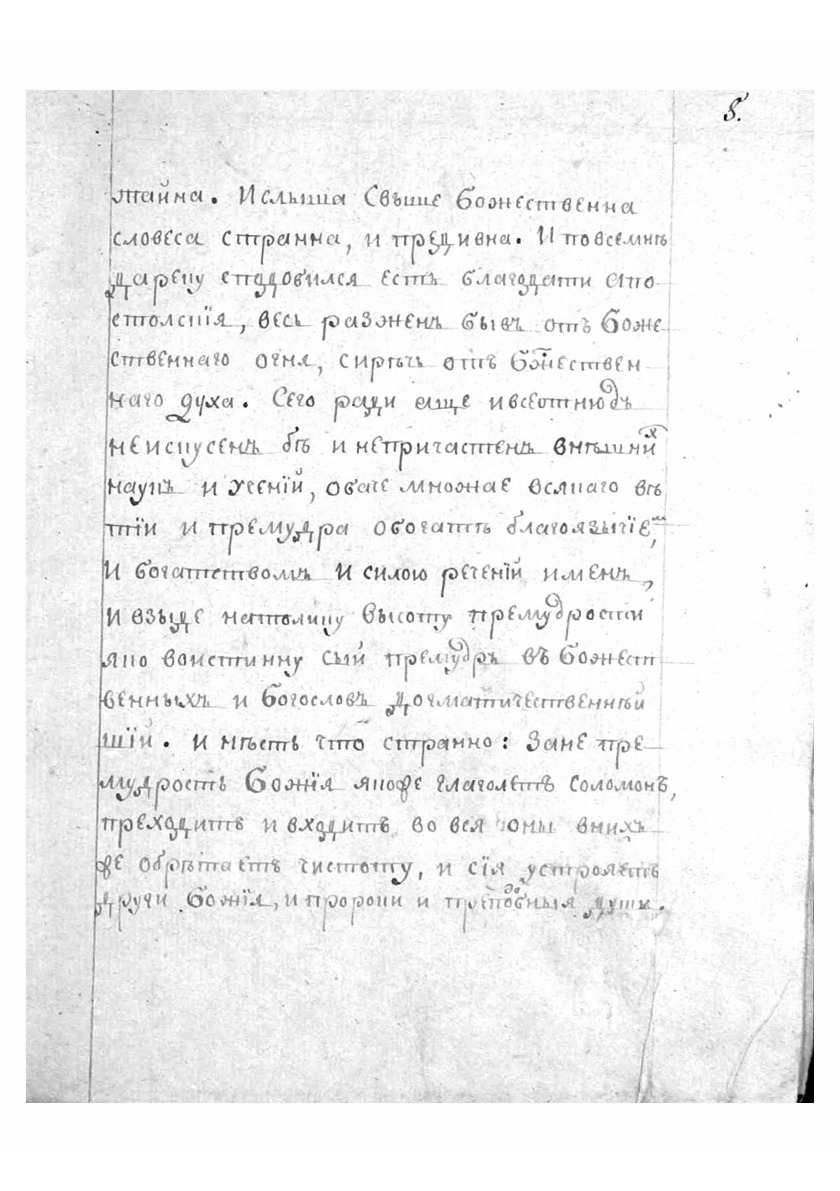 8.
тайна. И слыша Свыше Божественна
словеса странна, и предивна. И по всемъ
Дареху сподобился есть благодати Апо-
столскїя, весь разженъ бывъ отъ Боже-
ственнаго огня, сирѣчь отъ Божествен-
наго духа. Сего ради аще и всеотнюдъ
неискусенъ бѣ и непричастенъ внѣшнихъ
наукъ и ученїй, обаче множае всякаго вѣ
тїи и премудра обогатѣ благоязычїемъ,
И богатствомъ И силою реченїй именъ,
И взыде на толику высоту премудрости
яко воистинну сый премудръ въ Божест-
венныхъ и Богословъ Догматичественнѣй
шїй. и нѣсть что странно: Зане пре-
мудрость Божїя якоже глаголетъ Соломонъ,
преходитъ и входитъ во вся оны в нихъ
же обрѣтаетъ чистоту, и сїя устрояетъ
други Божїя, и пророки и преподобныя души.